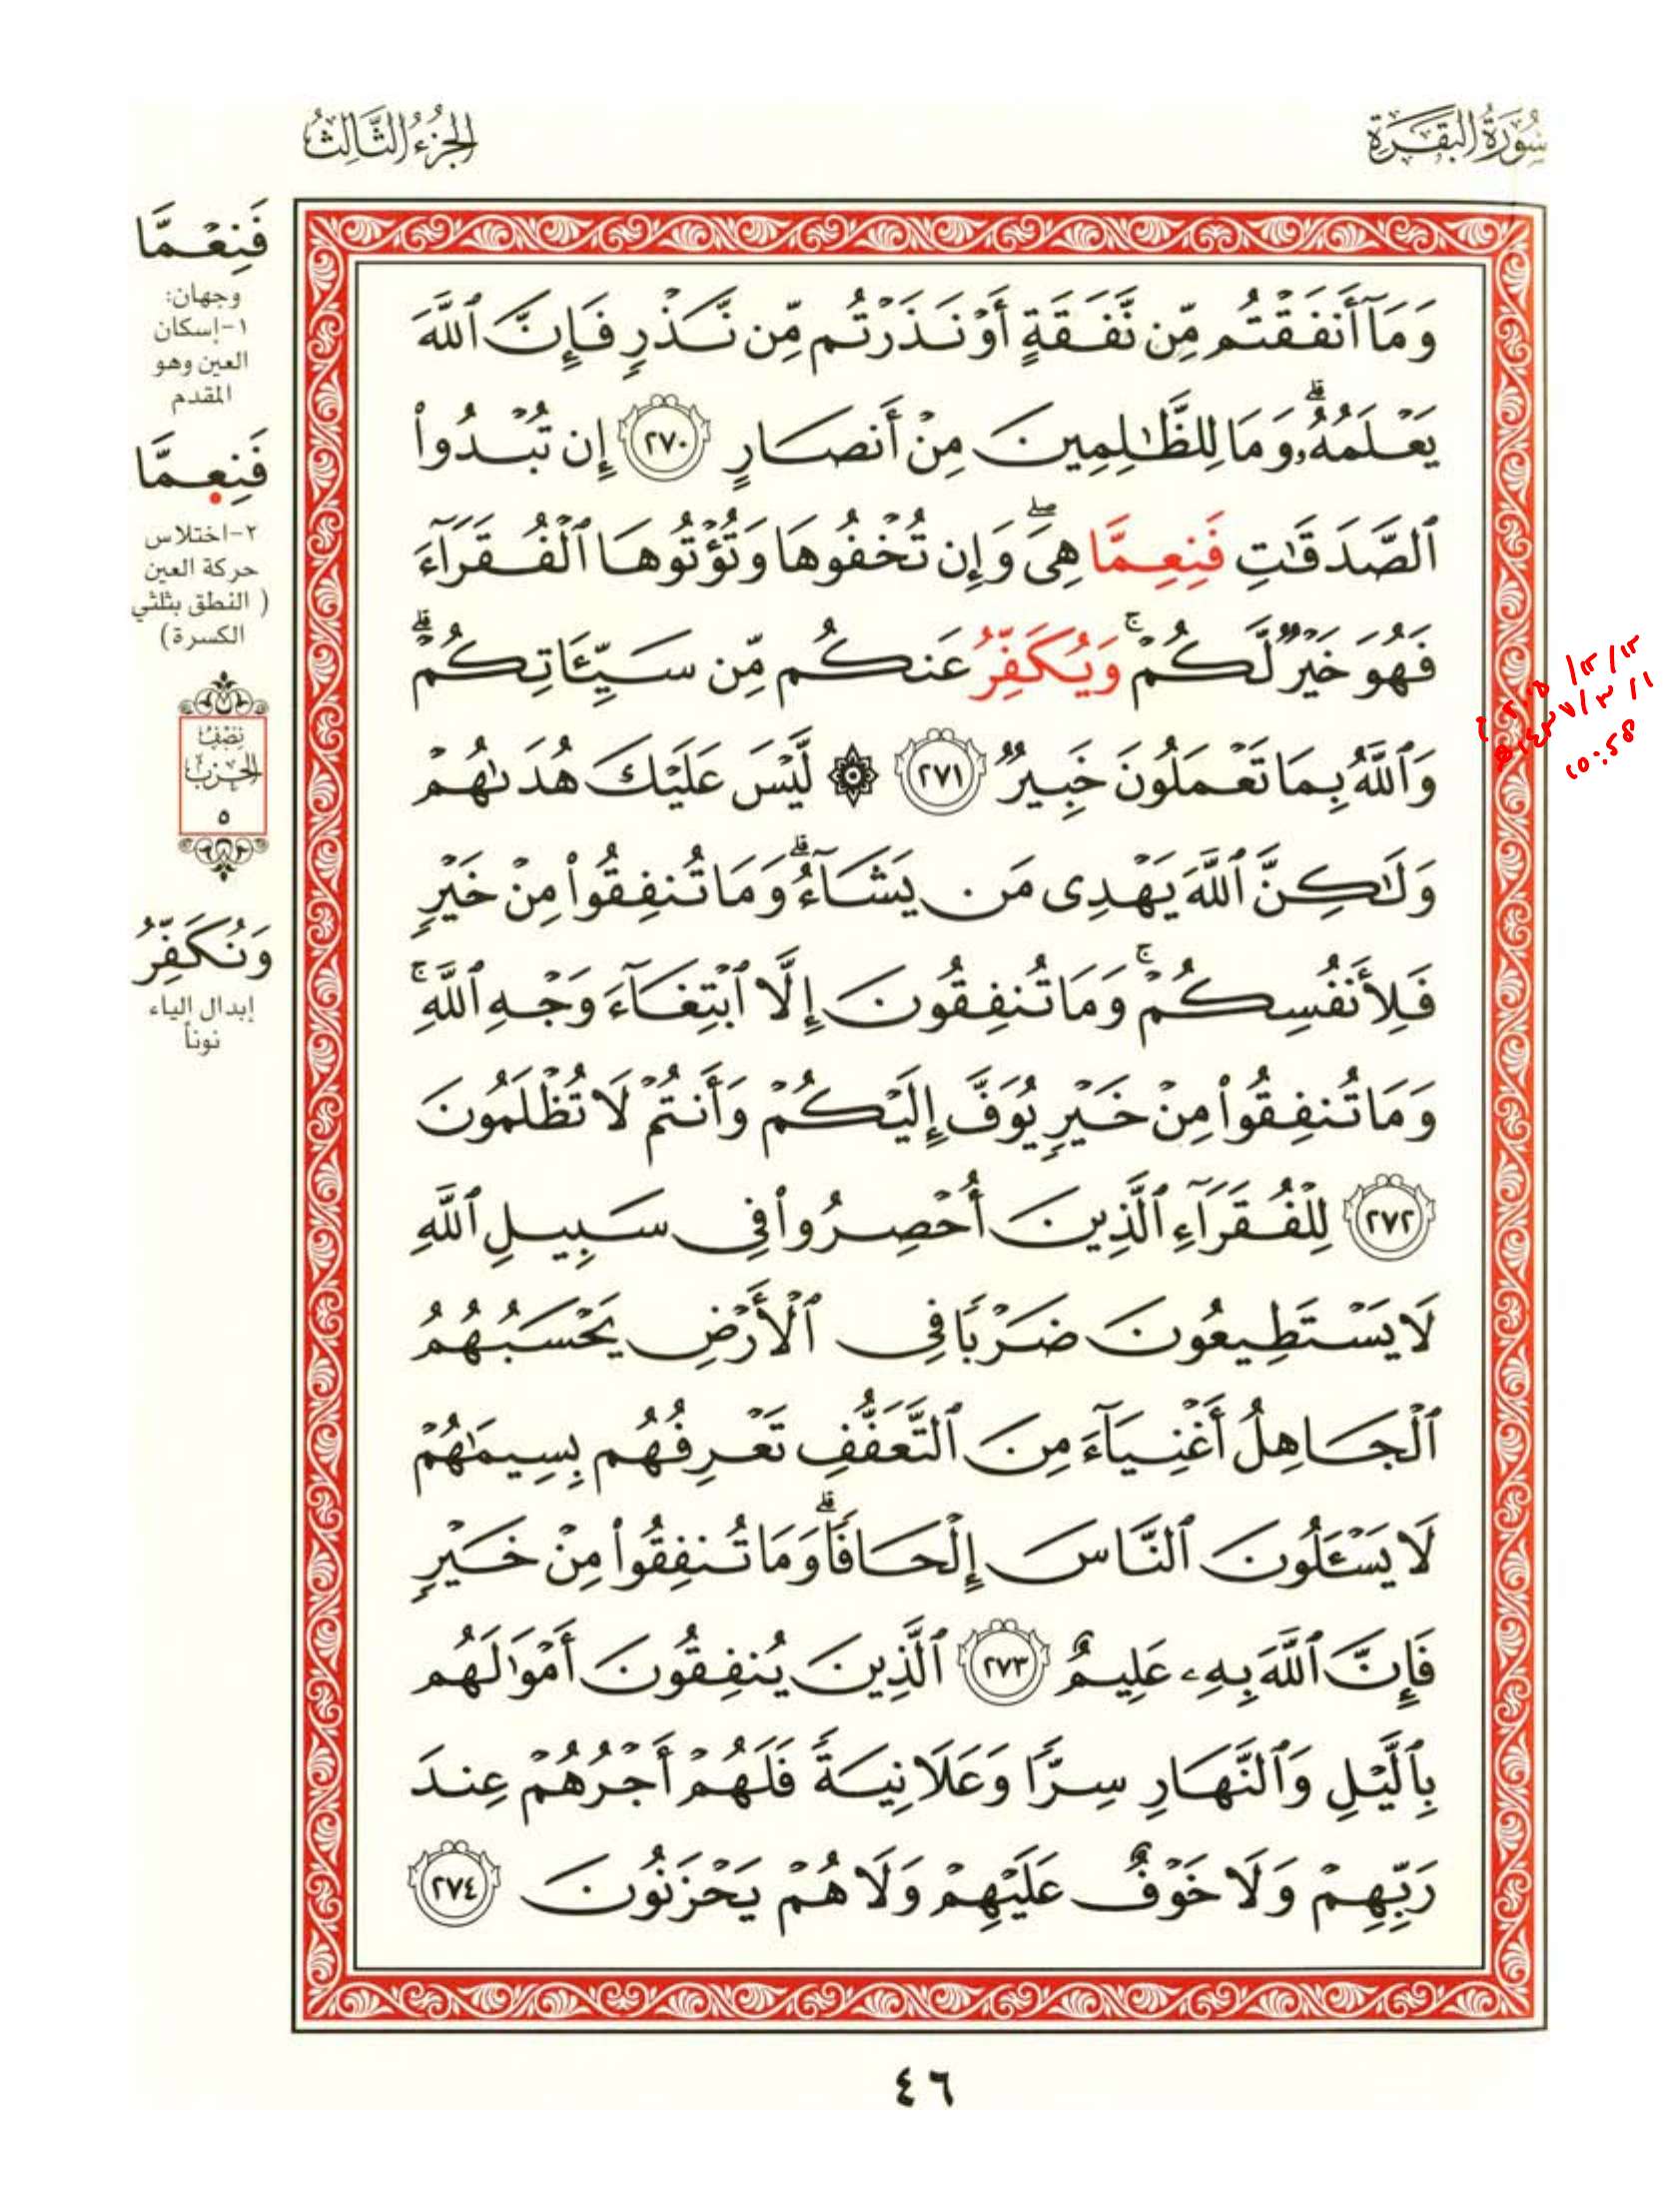 سُورَةُ البَقَرَةِ
الجُزْءُ الثَّالِثُ
وَمَآ أَنفَقْتُم مِّن نَّفَقَةٍ أَوْ نَذَرْتُم مِّن نَّذْرٍ فَإِنَّ ٱللَّهَ
يَعْلَمُهُۥۗ وَمَا لِلظَّٰلِمِينَ مِنْ أَنصَارٍ ٢٧٠ إِن تُبْدُوا۟
ٱلصَّدَقَٰتِ فَنِعِمَّا هِىَۖ وَإِن تُخْفُوهَا وَتُؤْتُوهَا ٱلْفُقَرَآءَ
فَهُوَ خَيْرٌ لَّكُمْۚ وَيُكَفِّرُ عَنكُم مِّن سَيِّـَٔاتِكُمْۗ
وَٱللَّهُ بِمَا تَعْمَلُونَ خَبِيرٌ ٢٧١ ۞ لَّيْسَ عَلَيْكَ هُدَىٰهُمْ
وَلَٰكِنَّ ٱللَّهَ يَهْدِى مَن يَشَآءُۗ وَمَا تُنفِقُوا۟ مِنْ خَيْرٍ
فَلِأَنفُسِكُمْۚ وَمَا تُنفِقُونَ إِلَّا ٱبْتِغَآءَ وَجْهِ ٱللَّهِۚ
وَمَا تُنفِقُوا۟ مِنْ خَيْرٍ يُوَفَّ إِلَيْكُمْ وَأَنتُمْ لَا تُظْلَمُونَ
٢٧٢ لِلْفُقَرَآءِ ٱلَّذِينَ أُحْصِرُوا۟ فِى سَبِيلِ ٱللَّهِ
لَا يَسْتَطِيعُونَ ضَرْبًا فِى ٱلْأَرْضِ يَحْسَبُهُمُ
ٱلْجَاهِلُ أَغْنِيَآءَ مِنَ ٱلتَّعَفُّفِ تَعْرِفُهُم بِسِيمَٰهُمْ
لَا يَسْـَٔلُونَ ٱلنَّاسَ إِلْحَافًاۗ وَمَا تُنفِقُوا۟ مِنْ خَيْرٍ
فَإِنَّ ٱللَّهَ بِهِۦ عَلِيمٌ ٢٧٣ ٱلَّذِينَ يُنفِقُونَ أَمْوَٰلَهُم
بِٱلَّيْلِ وَٱلنَّهَارِ سِرًّا وَعَلَانِيَةً فَلَهُمْ أَجْرُهُمْ عِندَ
رَبِّهِمْ وَلَا خَوْفٌ عَلَيْهِمْ وَلَا هُمْ يَحْزَنُونَ ٢٧٤
فَنِعْمَّا
وجهان:
١-إسكان
العين وهو
المقدم
فَنِعِمَّا
٢-اختلاس
حركة العين
( النطق بثلثي
الكسرة)
نِصْفُ
الحِزْبِ
٥
وَنُكَفِّرُ
إبدال الياء
نوناً
٤٦